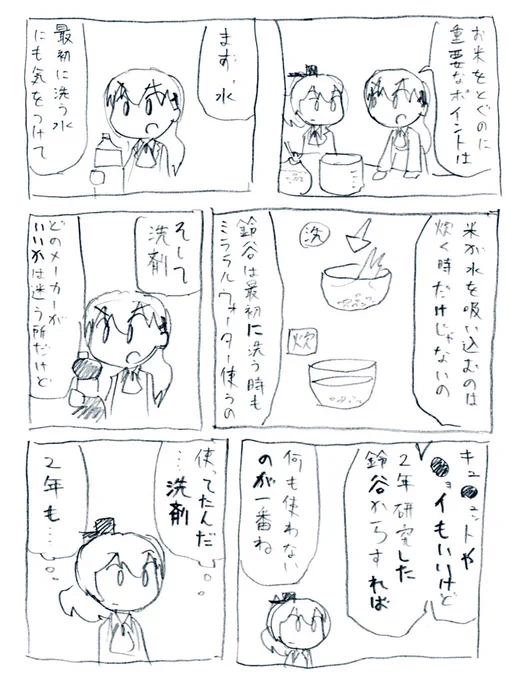 お米をとぐのに
重要なポイントは
まず、水
最初に洗う水
にも気をつけて
米が水を吸い込むのは
炊く時だけじゃないの
洗
炊
鈴谷は最初に洗う時も
ミネラルウォーター使うの
そして
洗剤
どのメーカーが
いいかは迷う所だけど
キュ●ュットや
●ョイもいいけど
2年研究した
鈴谷からすれば
何も使わない
のが一番ね
使ってたんだ
…洗剤
2年も…